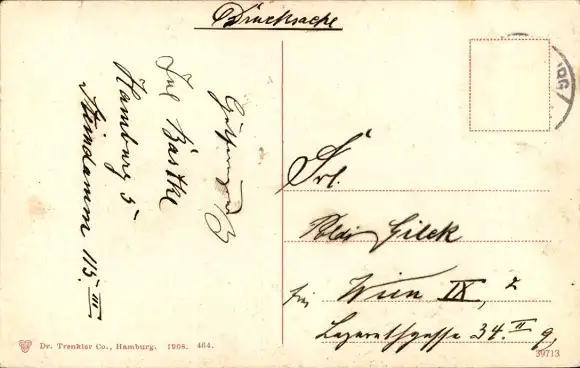 Drucksache
Bästke
Hamburg 5
Steindamm 115. III
Frl.
Poldi Gilek
in Wien IX, 2
Lazarethgasse 34. II 9,
Dr. Trenkler Co., Hamburg. 1908. 464.
39713